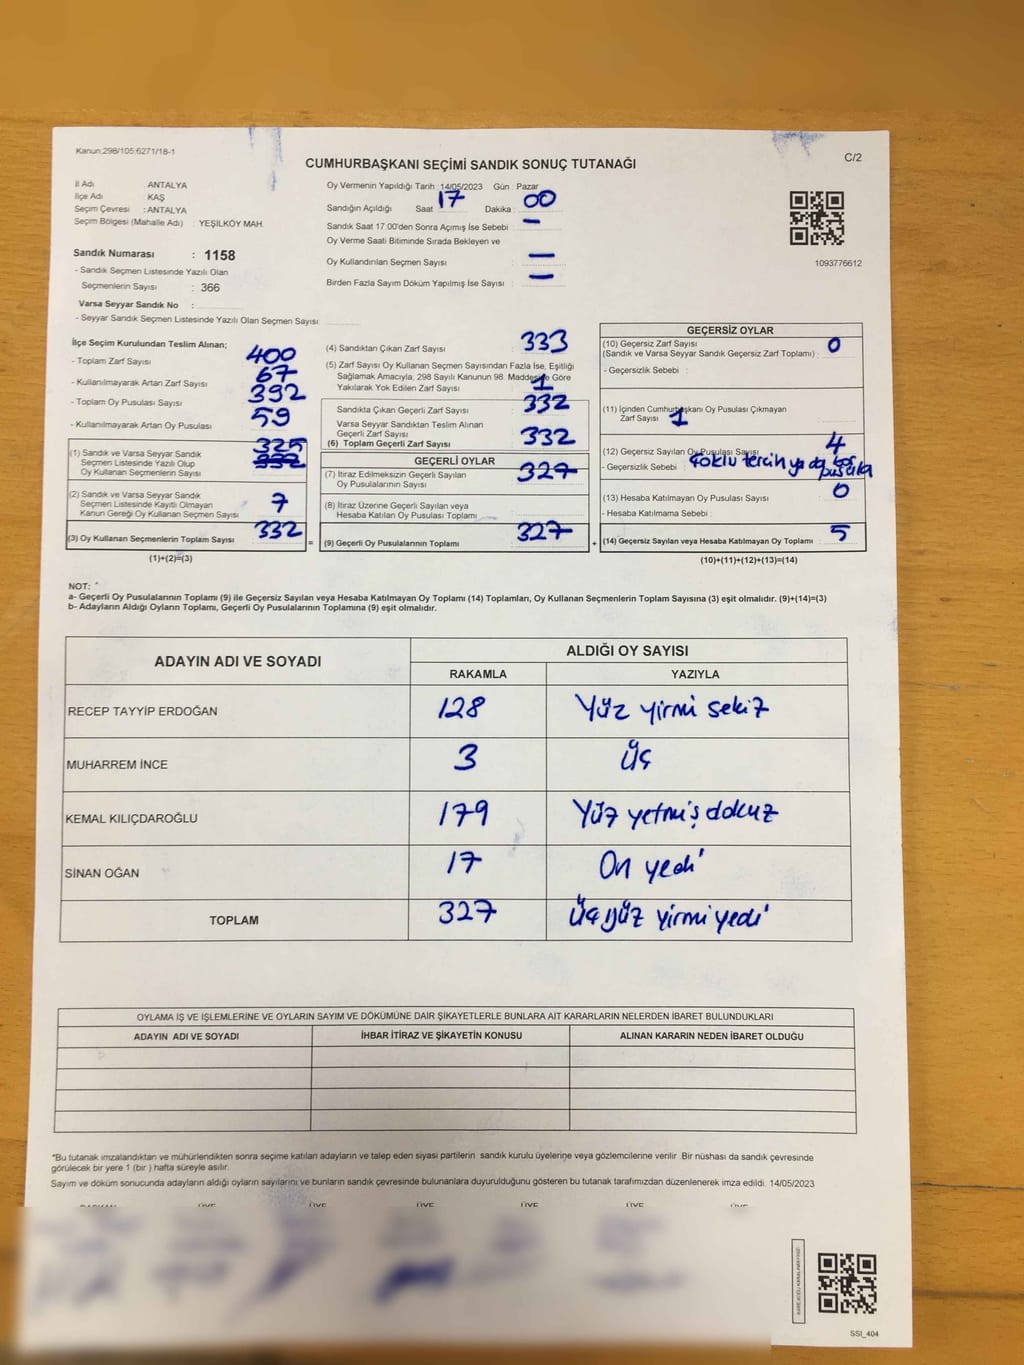 Kanun:298/105:6271/18-1
CUMHURBAŞKANI SEÇİMİ SANDIK SONUÇ TUTANAĞI
C/2
İl Adı ANTALYA
İlçe Adı KAŞ
Seçim Çevresi : ANTALYA
Seçim Bölgesi (Mahalle Adı) : YEŞİLKÖY MAH.
Oy Vermenin Yapıldığı Tarih : 14/05/2023 Gün : Pazar
Sandığın Açıldığı Saat 17 Dakika : 00
Sandık Saat 17:00'den Sonra Açımış İse Sebebi : –
Oy Verme Saati Bitiminde Sırada Bekleyen ve
Oy Kullandırılan Seçmen Sayısı –
Birden Fazla Sayım Döküm Yapılmış İse Sayısı : –
1093776612
Sandık Numarası : 1158
- Sandık Seçmen Listesinde Yazılı Olan
Seçmenlerin Sayısı : 366
Varsa Seyyar Sandık No :
- Seyyar Sandık Seçmen Listesinde Yazılı Olan Seçmen Sayısı:
İlçe Seçim Kurulundan Teslim Alınan;
- Toplam Zarf Sayısı 400
- Kullanılmayarak Artan Zarf Sayısı 67
- Toplam Oy Pusulası Sayısı 392
- Kullanılmayarak Artan Oy Pusulası 59
(1) Sandık ve Varsa Seyyar Sandık 325
Seçmen Listesinde Yazılı Olup 332
Oy Kullanan Seçmenlerin Sayısı
(2) Sandık ve Varsa Seyyar Sandık
Seçmen Listesinde Kayıtlı Olmayan 7
Kanun Gereği Oy Kullanan Seçmen Sayısı
(3) Oy Kullanan Seçmenlerin Toplam Sayısı 332
(1)+(2)=(3)
(4) Sandıktan Çıkan Zarf Sayısı 333
(5) Zarf Sayısı Oy Kullanan Seçmen Sayısından Fazla İse, Eşitliği
Sağlamak Amacıyla, 298 Sayılı Kanunun 98. Maddesine Göre
Yakılarak Yok Edilen Zarf Sayısı 1
Sandıkta Çıkan Geçerli Zarf Sayısı 332
Varsa Seyyar Sandıktan Teslim Alınan
Geçerli Zarf Sayısı
(6) Toplam Geçerli Zarf Sayısı 332
GEÇERLİ OYLAR
(7) İtiraz Edilmeksizin Geçerli Sayılan 327
Oy Pusulalarının Sayısı
(8) İtiraz Üzerine Geçerli Sayılan veya
Hesaba Katılan Oy Pusulası Toplamı
= (9) Geçerli Oy Pusulalarının Toplamı 327 +
GEÇERSİZ OYLAR
(10) Geçersiz Zarf Sayısı 0
(Sandık ve Varsa Seyyar Sandık Geçersiz Zarf Toplamı) :
- Geçersizlik Sebebi :
(11) İçinden Cumhurbaşkanı Oy Pusulası Çıkmayan
Zarf Sayısı 1
(12) Geçersiz Sayılan Oy Pusulası Sayısı 4
- Geçersizlik Sebebi : Çoklu tercih ya da boş pusula
(13) Hesaba Katılmayan Oy Pusulası Sayısı 0
- Hesaba Katılmama Sebebi :
(14) Geçersiz Sayılan veya Hesaba Katılmayan Oy Toplamı 5
(10)+(11)+(12)+(13)=(14)
NOT:
a- Geçerli Oy Pusulalarının Toplamı (9) ile Geçersiz Sayılan veya Hesaba Katılmayan Oy Toplamı (14) Toplamları, Oy Kullanan Seçmenlerin Toplam Sayısına (3) eşit olmalıdır. (9)+(14)=(3)
b- Adayların Aldığı Oyların Toplamı, Geçerli Oy Pusulalarının Toplamına (9) eşit olmalıdır.
ADAYIN ADI VE SOYADI ALDIĞI OY SAYISI
RAKAMLA YAZIYLA
RECEP TAYYİP ERDOĞAN 128 Yüz yirmi sekiz
MUHARREM İNCE 3 Üç
KEMAL KILIÇDAROĞLU 179 Yüz yetmiş dokuz
SİNAN OĞAN 17 On yedi
TOPLAM 327 Üçyüz yirmi yedi
OYLAMA İŞ VE İŞLEMLERİNE VE OYLARIN SAYIM VE DÖKÜMÜNE DAİR ŞİKAYETLERLE BUNLARA AİT KARARLARIN NELERDEN İBARET BULUNDUKLARI
ADAYIN ADI VE SOYADI İHBAR İTİRAZ VE ŞİKAYETİN KONUSU ALINAN KARARIN NEDEN İBARET OLDUĞU
*Bu tutanak imzalandıktan ve mühürlendikten sonra seçime katılan adayların ve talep eden siyasi partilerin sandık kurulu üyelerine veya gözlemcilerine verilir. Bir nüshası da sandık çevresinde
görülecek bir yere 1 (bir ) hafta süreyle asılır.
Sayım ve döküm sonucunda adayların aldığı oyların sayılarını ve bunların sandık çevresinde bulunanlara duyurulduğunu gösteren bu tutanak tarafımızdan düzenlenerek imza edildi. 14/05/2023
BAŞKAN ÜYE ÜYE ÜYE ÜYE ÜYE ÜYE
SSI_404